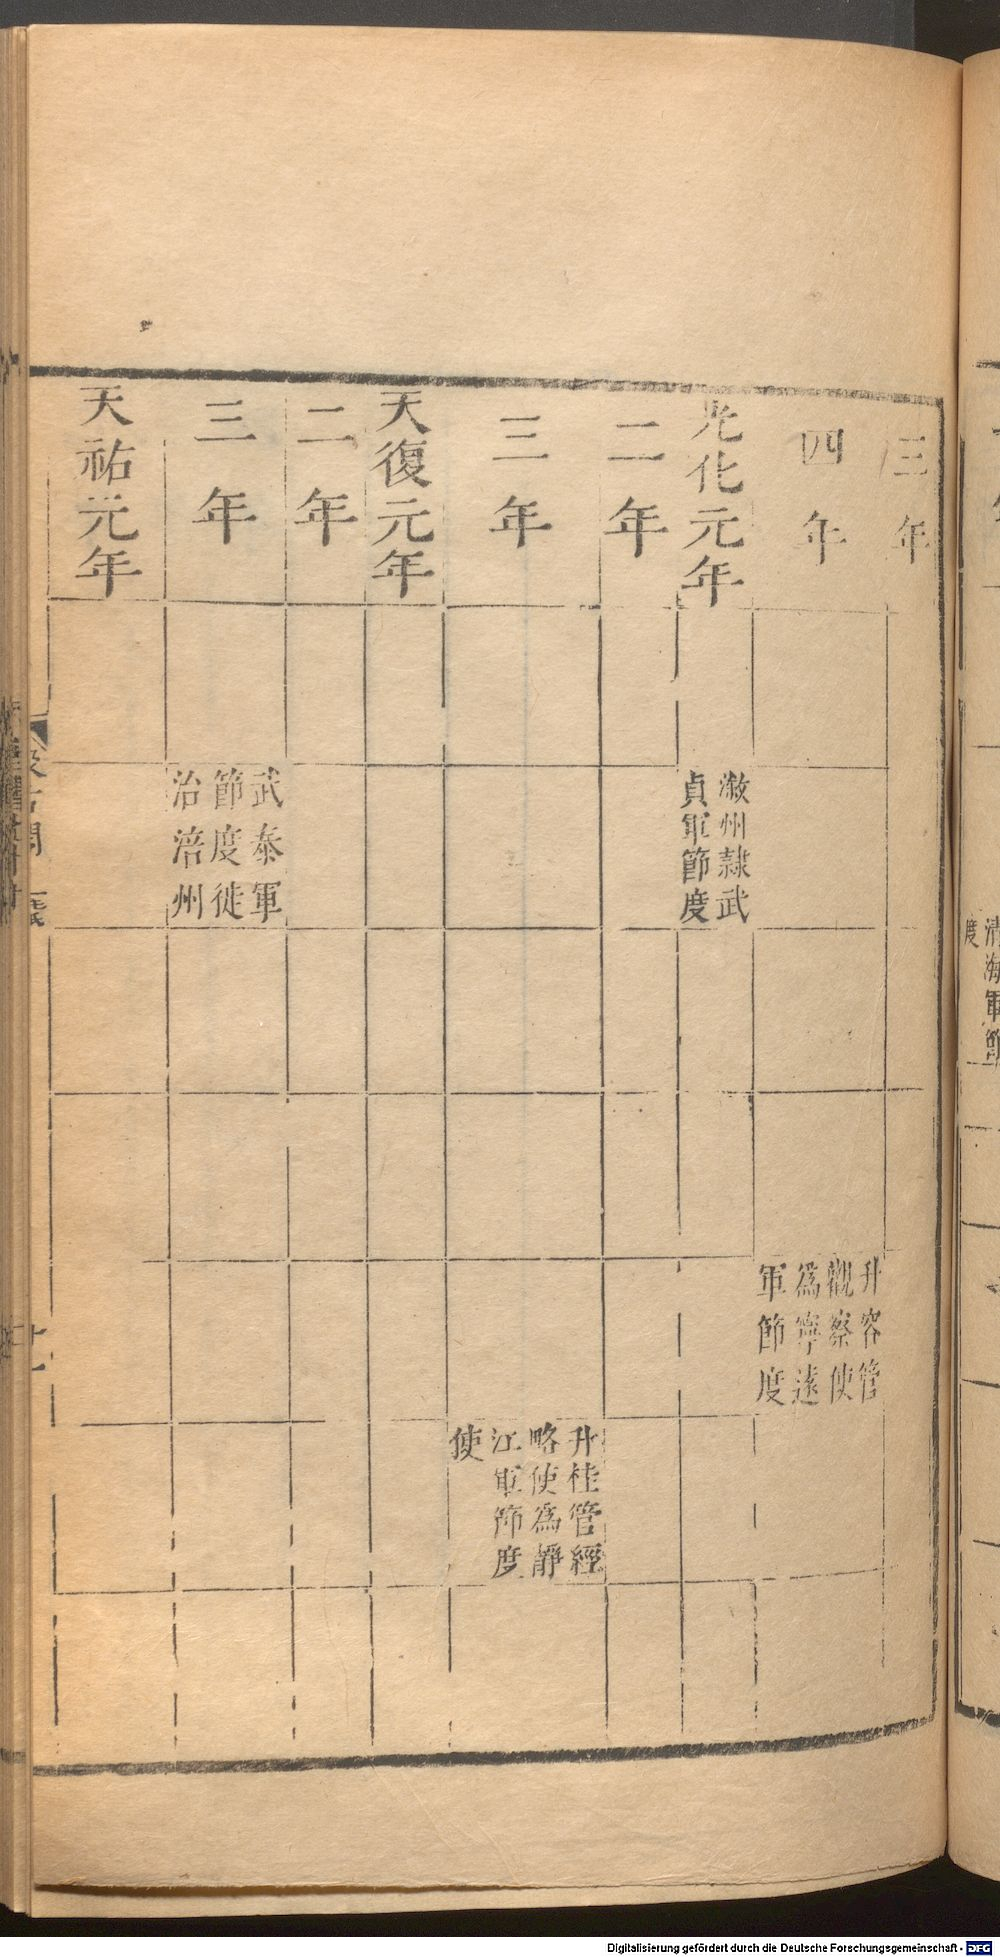 三年
四年
升容管
觀察使
爲寧遠
軍節度
光化元年
漵州隷武
貞軍節度
二年
三年
升桂管經
略使爲靜
江軍節度
使
天復元年
二年
三年
武泰軍
節度徙
治涪州
天祐元年
清海軍節
度
Digitalisierung gefördert durch die Deutsche Forschungsgemeinschaft - DFG